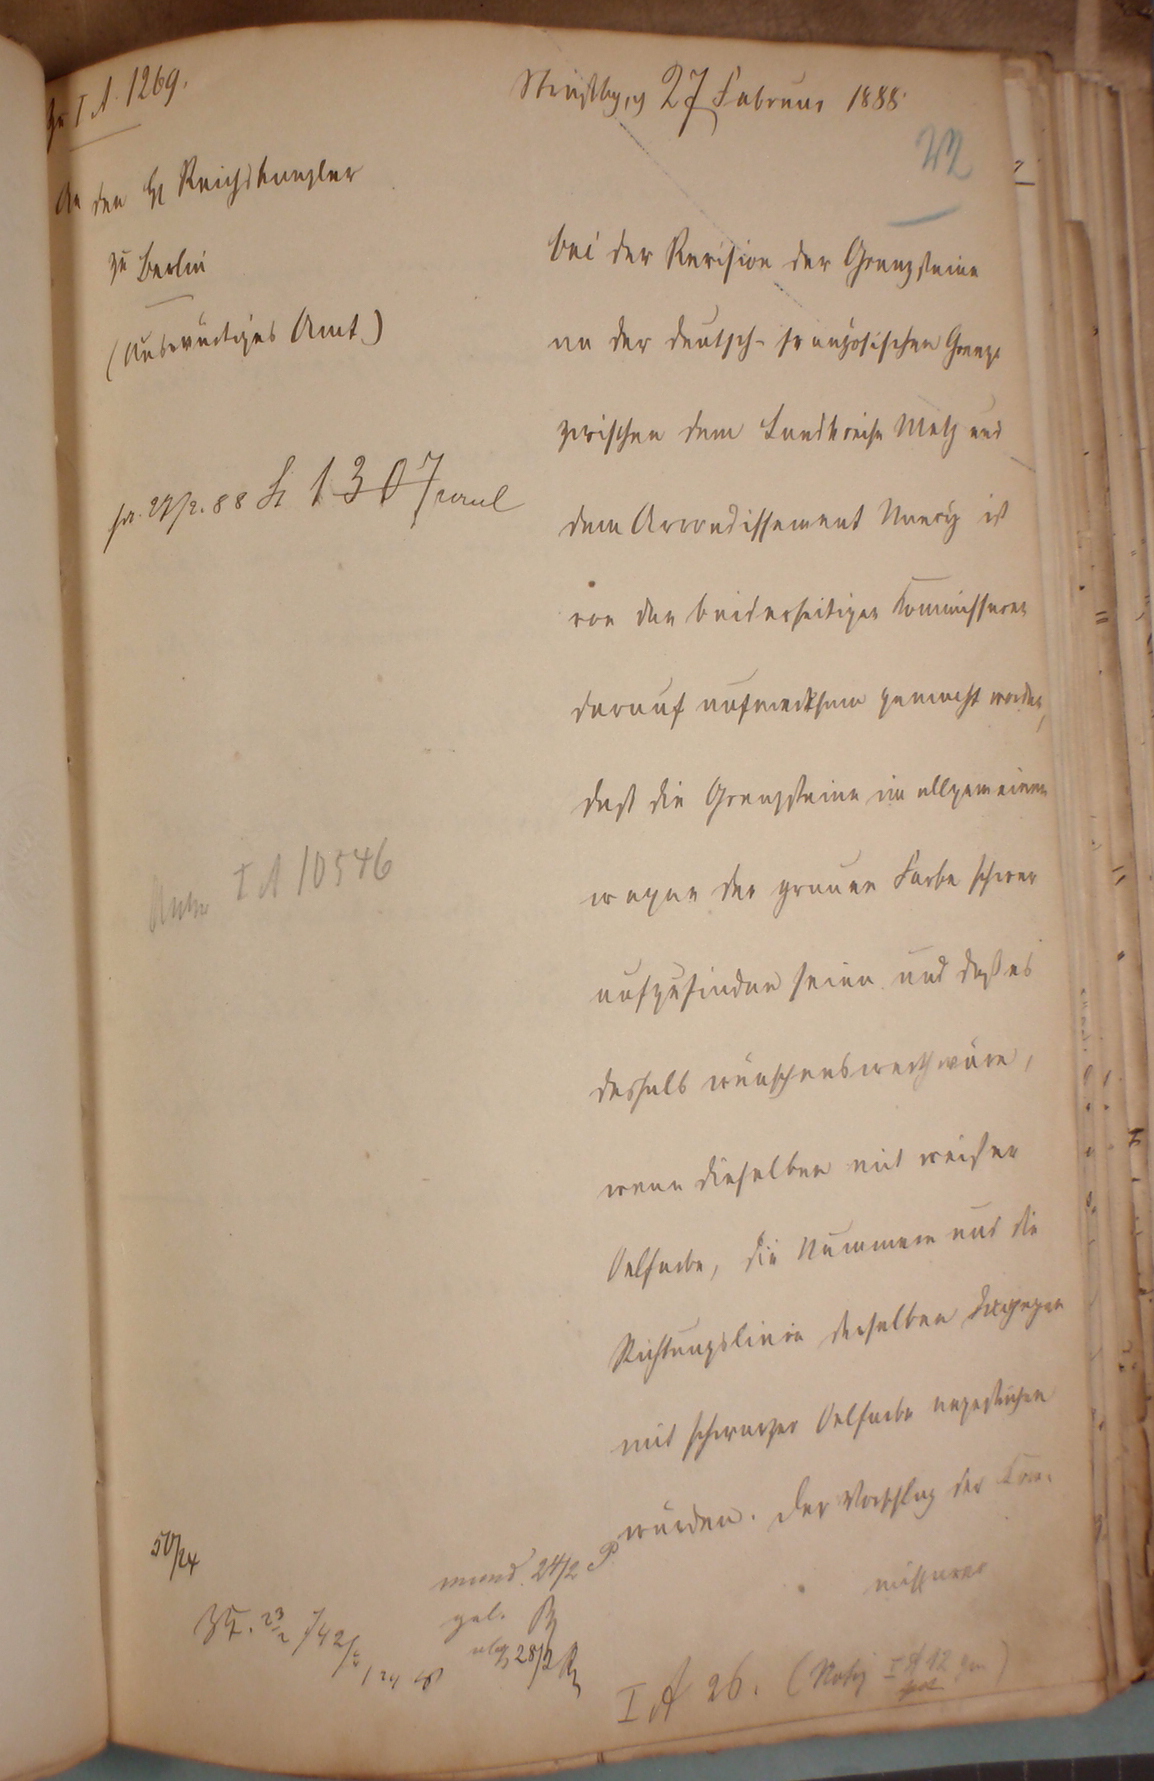 Zu I A. 1269.
Straßbg, 27 Februar 1888
22
An den H Reichskanzler
zu Berlin
(Auswärtiges Amt)
Bei der Revision der Grenzsteine
an der deutsch-französischen Grenze
zwischen dem Landkreise Metz und
dem Arrondissement Nancy ist
von den beiderseitigen Kommissaren
darauf aufmerksam gemacht worden,
daß die Grenzsteine im allgemeinen
wegen der grauen Farbe schwer
aufzufinden seien und daß es
deshalb wünschenswerth wäre,
wenn dieselben mit weißer
Oelfarbe, die Nummern und die
Richtungslinie derselben dagegen
mit schwarzer Oelfarbe angestrichen
würden. Der Vorschlag der Kom-
missare
pr. 27/2. 88 St 1307
I A 10546
50/24
mund. 24/2
gel.
abg 28/2
I A 26. (Notiz I A 12